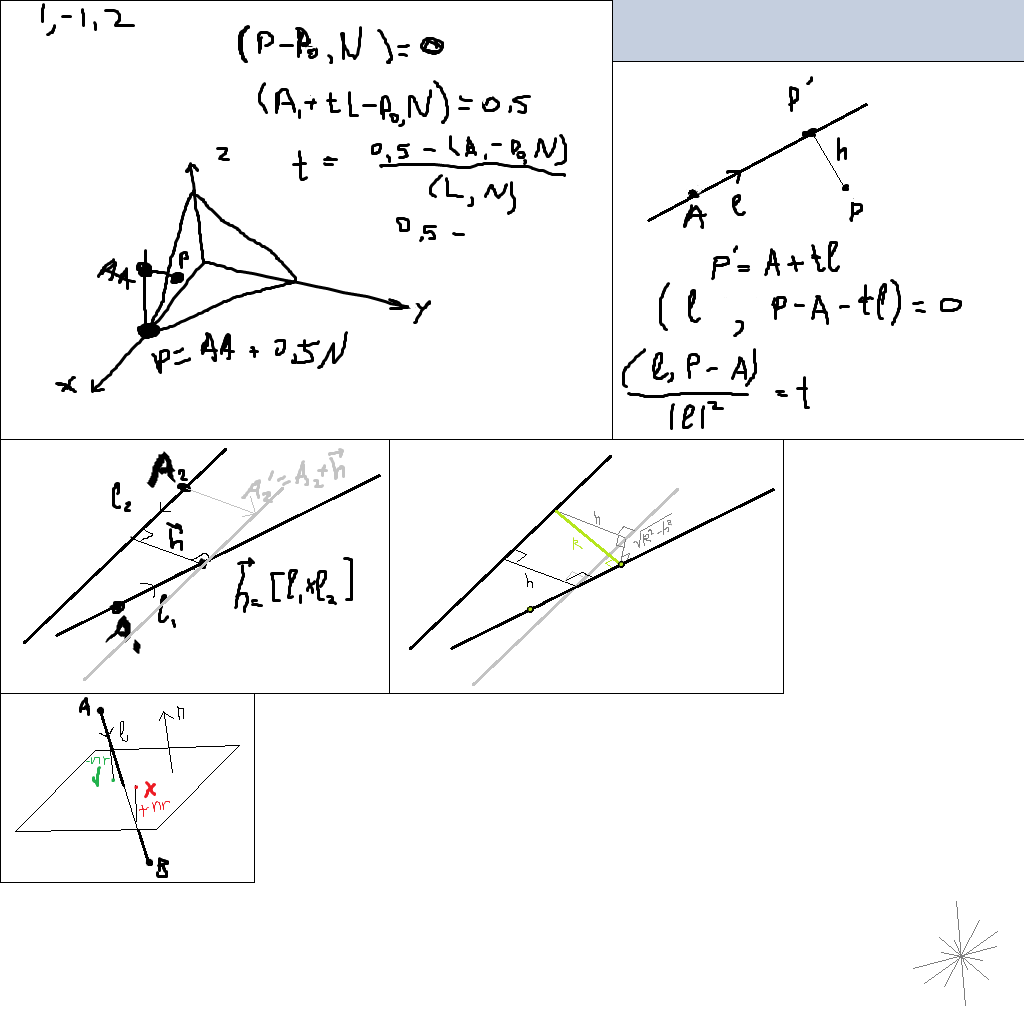 1,-1,2
(P-P₀,N)=0
(A₁+tL-P₀,N)=0.5
t = 0,5-(A₁-P₀,N) / (L,N)
0,5-
z
AA
P
y
x
P=AA+0,5N
P'
h
A
l
P
P'=A+tl
(l, P-A-tl)=0
(l,P-A) / |l|² = t
A₂
A₂'=A₂+h⃗
l₂
h⃗
h⃗=[l₁×l₂]
l₁
A₁
h
R
√R²-h²
h
A
n
l
-nr
x
+nr
B